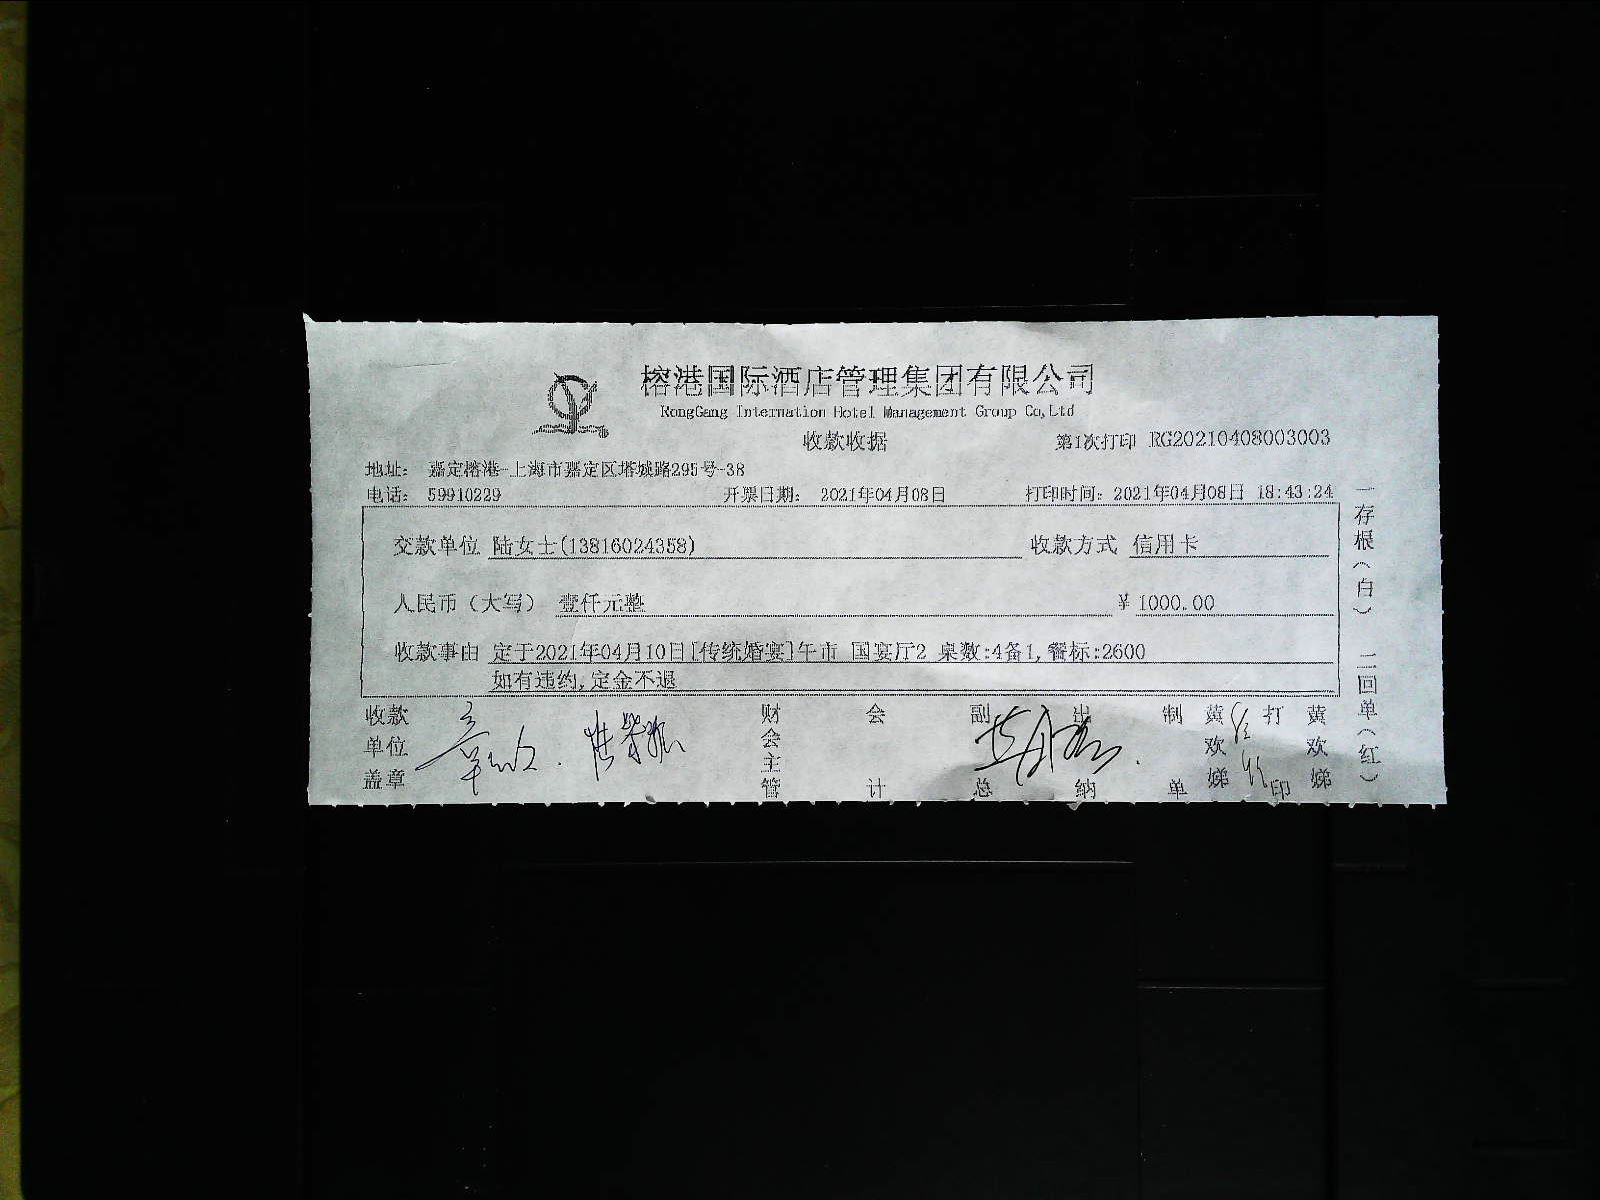 榕港国际酒店管理集团有限公司
RongGang Internation Hotel Management Group Co,Ltd
收款收据
第1次打印 RG20210408003003
地址： 嘉定榕港-上海市嘉定区塔城路295号-38
电话： 59910229 开票日期： 2021年04月08日 打印时间：2021年04月08日 18:43:24
交款单位 陆女士(13816024358) 收款方式 信用卡
人民币（大写） 壹仟元整 ￥ 1000.00
收款事由 定于2021年04月10日[传统婚宴]午市 国宴厅2 桌数:4备1,餐标:2600
如有违约,定金不退
收款单位盖章 财会主管 会计 副总 出纳 制单 黄欢娣 打印 黄欢娣
一存根（白） 二回单（红）